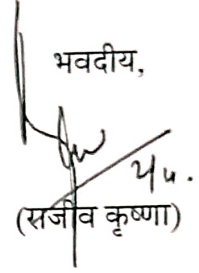 भवदीय,
(सजीव कृष्णा)